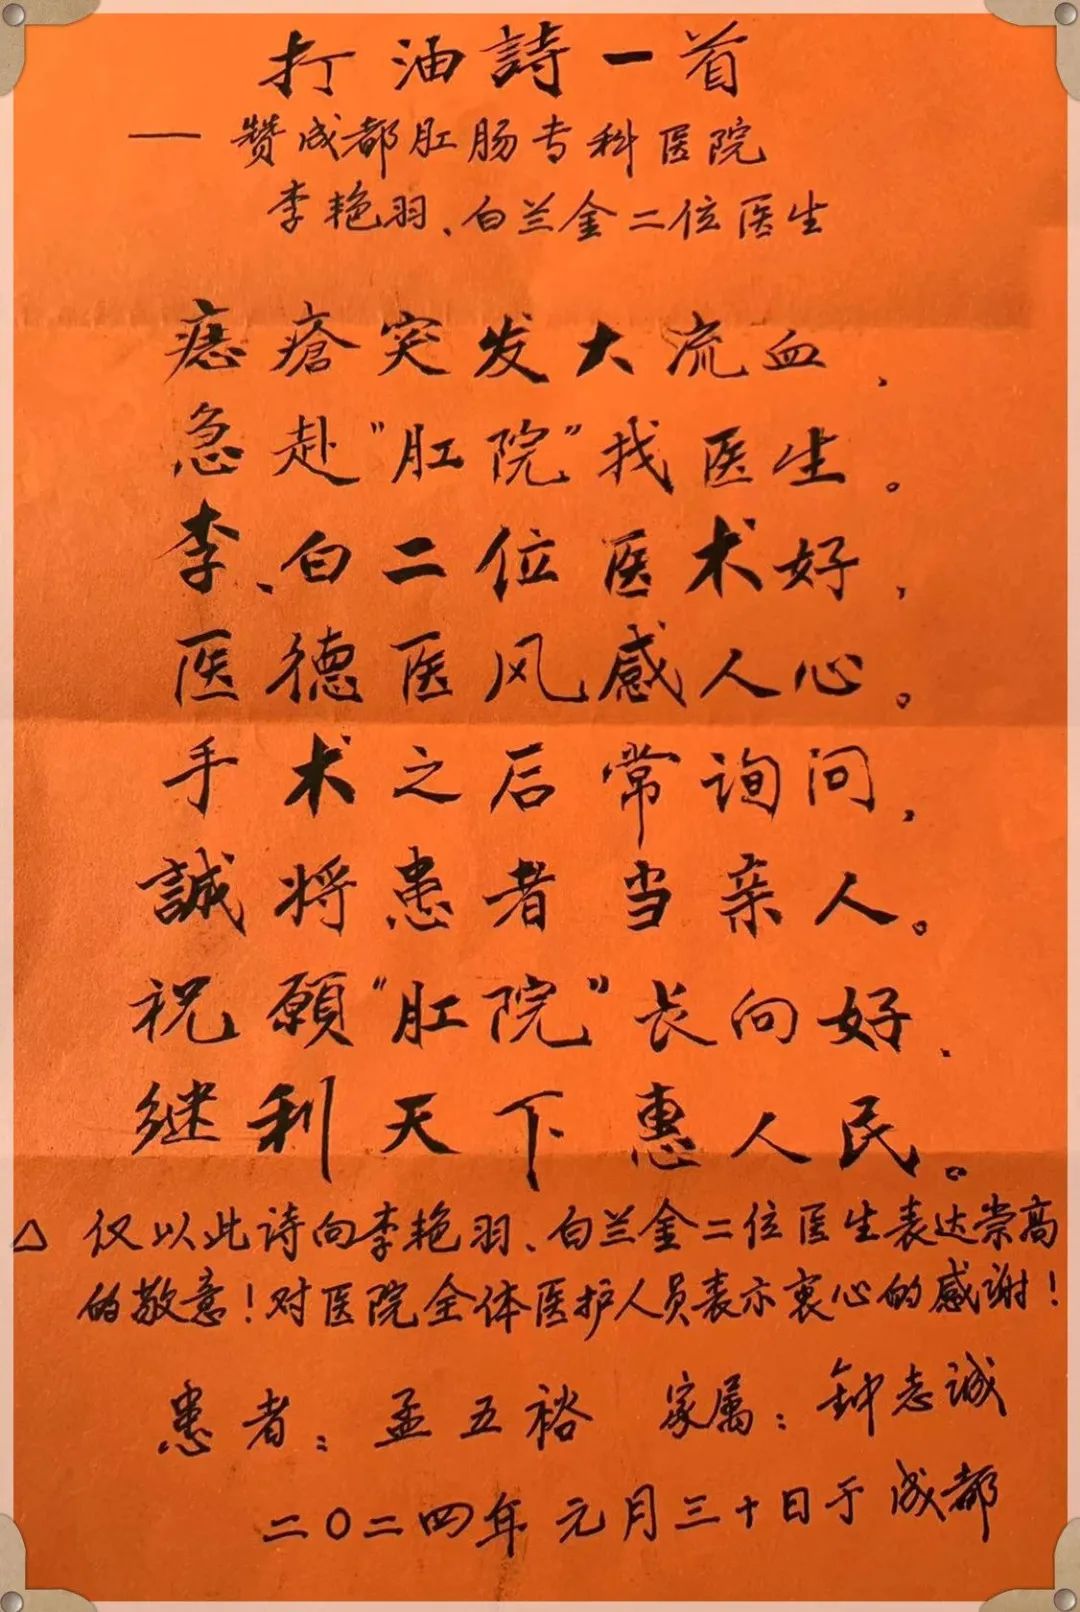 打油詩一首
——赞成都肛肠专科医院
李艳羽、白兰金二位医生
痣瘡突发大流血，
急赴"肛院"找医生。
李、白二位医术好，
医德医风感人心。
手术之后常询问，
誠将患者当亲人。
祝願"肛院"长向好，
继利天下惠人民。
△ 仅以此诗向李艳羽、白兰金二位医生表达崇高
的敬意！对医院全体医护人员表示衷心的感谢！
患者：孟五裕 家属：钟志诚
二〇二四年元月三十日于成都